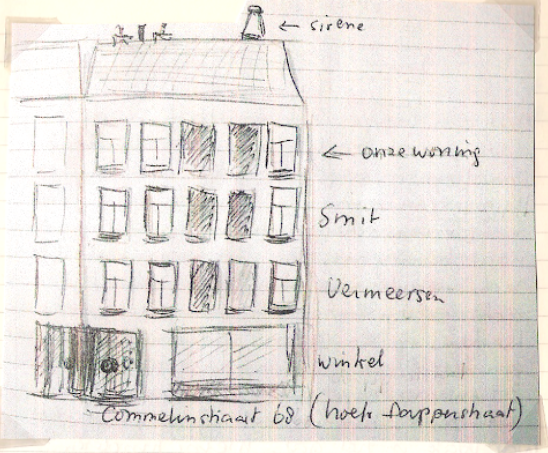 ← sirene
← onze woning
Smit
Vermeersen
winkel
Commelinstraat 68 (hoek Dapperstraat)